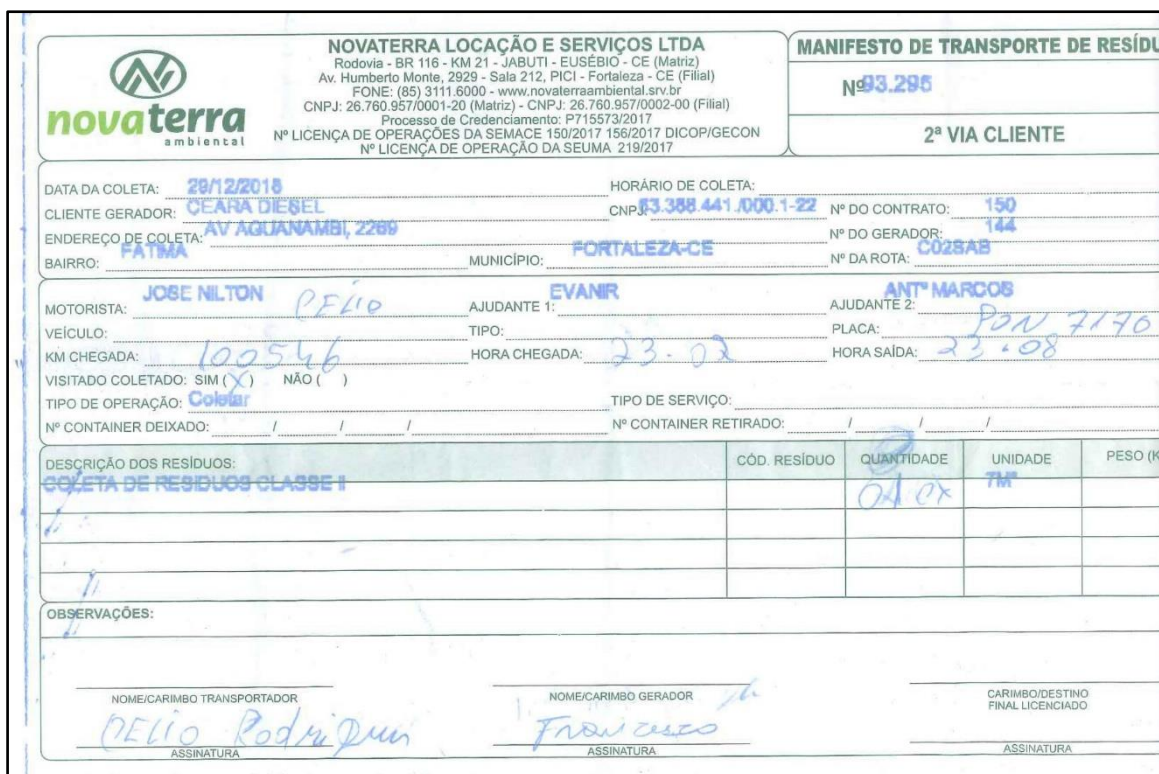 novaterra
ambiental
NOVATERRA LOCAÇÃO E SERVIÇOS LTDA
Rodovia - BR 116 - KM 21 - JABUTI - EUSÉBIO - CE (Matriz)
Av. Humberto Monte, 2929 - Sala 212, PICI - Fortaleza - CE (Filial)
FONE: (85) 3111.6000 - www.novaterraambiental.srv.br
CNPJ: 26.760.957/0001-20 (Matriz) - CNPJ: 26.760.957/0002-00 (Filial)
Processo de Credenciamento: P715573/2017
Nº LICENÇA DE OPERAÇÕES DA SEMACE 150/2017 156/2017 DICOP/GECON
Nº LICENÇA DE OPERAÇÃO DA SEUMA 219/2017
MANIFESTO DE TRANSPORTE DE RESÍDU
Nº 93.295
2ª VIA CLIENTE
DATA DA COLETA: 29/12/2018 HORÁRIO DE COLETA:
CLIENTE GERADOR: CEARA DIESEL CNPJ: 63.388.441./000.1-22 Nº DO CONTRATO: 150
ENDEREÇO DE COLETA: AV AGUANAMBI, 2269 Nº DO GERADOR: 144
BAIRRO: FATIMA MUNICÍPIO: FORTALEZA-CE Nº DA ROTA: C02SAB
MOTORISTA: JOSE NILTON CELIO AJUDANTE 1: EVANIR AJUDANTE 2: ANTº MARCOS
VEÍCULO: TIPO: PLACA: PON 7170
KM CHEGADA: 100546 HORA CHEGADA: 23.02 HORA SAÍDA: 23.08
VISITADO COLETADO: SIM (X) NÃO ( )
TIPO DE OPERAÇÃO: Coletar TIPO DE SERVIÇO:
Nº CONTAINER DEIXADO: / / / Nº CONTAINER RETIRADO: / / /
DESCRIÇÃO DOS RESÍDUOS: CÓD. RESÍDUO QUANTIDADE UNIDADE PESO (K
COLETA DE RESIDUOS CLASSE II 01 CX 7M³
OBSERVAÇÕES:
NOME/CARIMBO TRANSPORTADOR NOME/CARIMBO GERADOR CARIMBO/DESTINO
FINAL LICENCIADO
CELIO Rodrigues Francisco
ASSINATURA ASSINATURA ASSINATURA